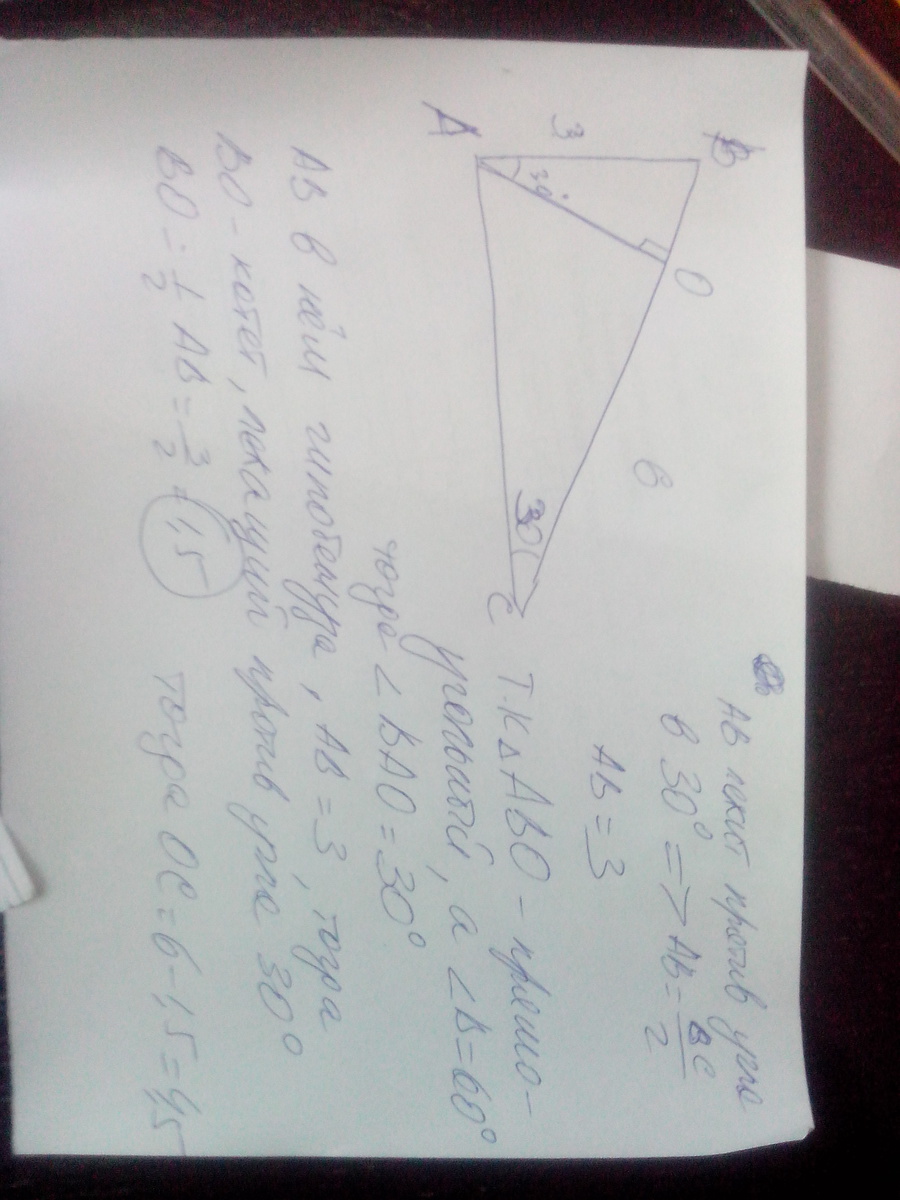 B
3
O
A
30°
6
30
C
AB лежит против угла
в 30° => AB = BC/2
AB = 3
Т.К Δ ABO - прямо-
угольный, а <B=60°
тогда < BAO = 30°
AB в нём гипотенуза, AB = 3, тогда
BO - катет, лежащий против угла 30°
BO = 1/2 AB = 3/2 = 1,5 тогда OC = 6-1,5 = 4,5